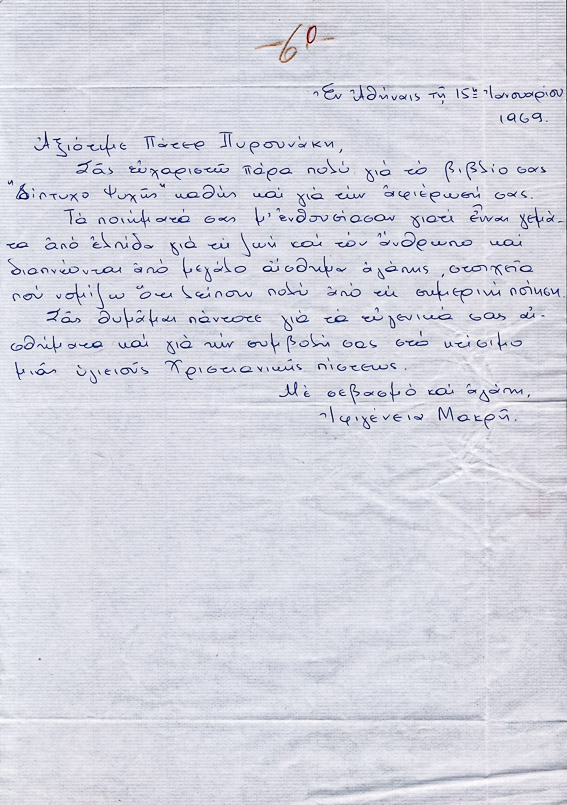 -60-
Ἐν Ἀθήναις τῇ 15ῃ Ἰανουαρίου
1969.
Ἀξιότιμε Πάτερ Πυρουνάκη,
Σᾶς εὐχαριστῶ πάρα πολύ γιά τό βιβλίο σας
"Δίπτυχο Ψυχῆς" καθώς καί γιά τήν ἀφιέρωσή σας.
Τά ποιήματά σας μ' ἐνθουσίασαν γιατί εἶναι γεμᾶ-
τα ἀπό ἐλπίδα γιά τή ζωή καί τόν ἄνθρωπο καί
διαπνέονται ἀπό μεγάλο αἴσθημα ἀγάπης, στοιχεῖα
πού νομίζω ὅτι λείπουν πολύ ἀπό τή σημερινή ποίηση.
Σᾶς θυμᾶμαι πάντοτε γιά τά εὐγενικά σας αἰ-
σθήματα καί γιά τήν συμβολή σας στό κτίσιμο
μιᾶς ὑγιειοῦς Χριστιανικῆς πίστεως.
Μέ σεβασμό καί ἀγάπη,
Ἰφιγένεια Μακρῆ.